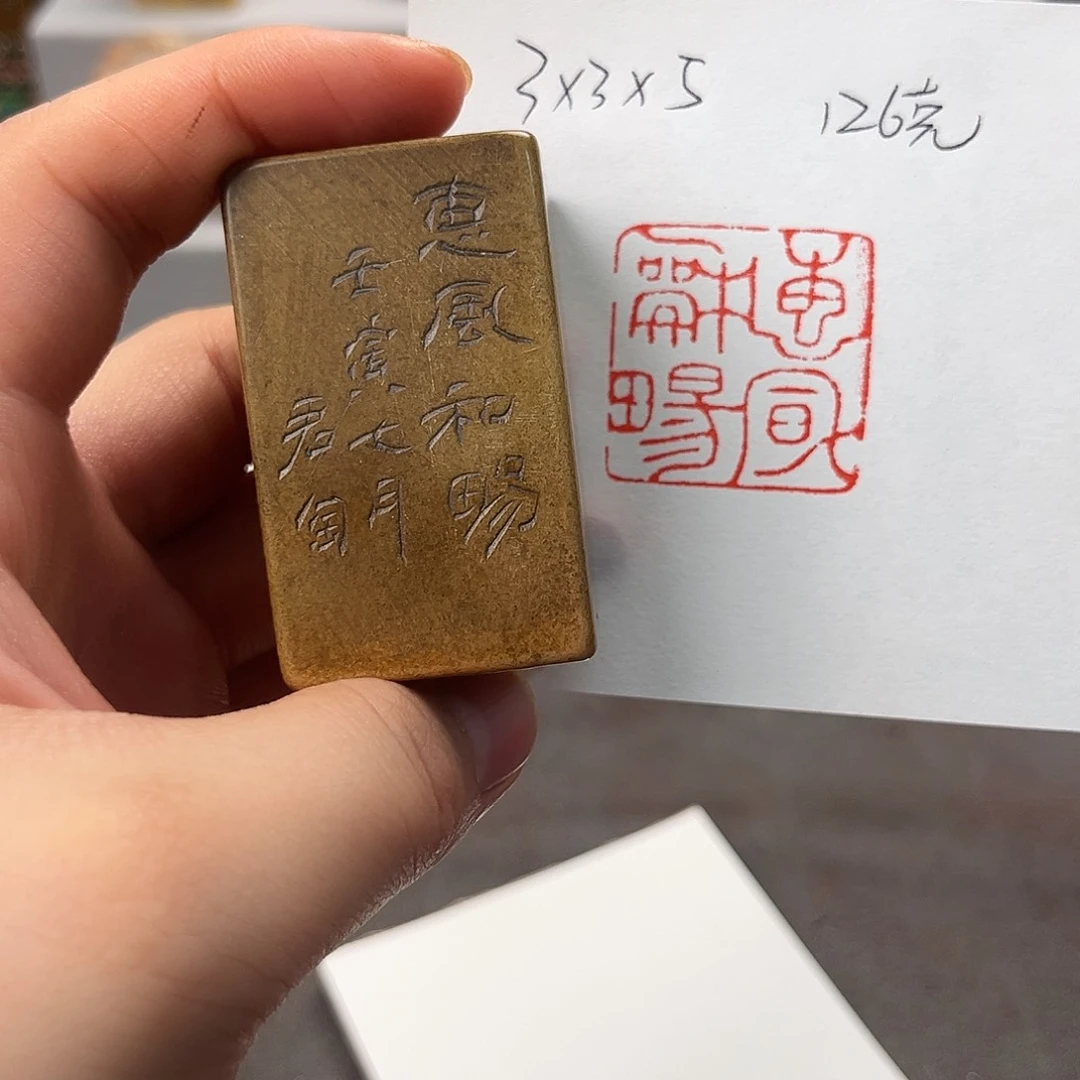 3x3x5
126克
惠風和暢
壬寅七月
君匋
惠風
龢暢